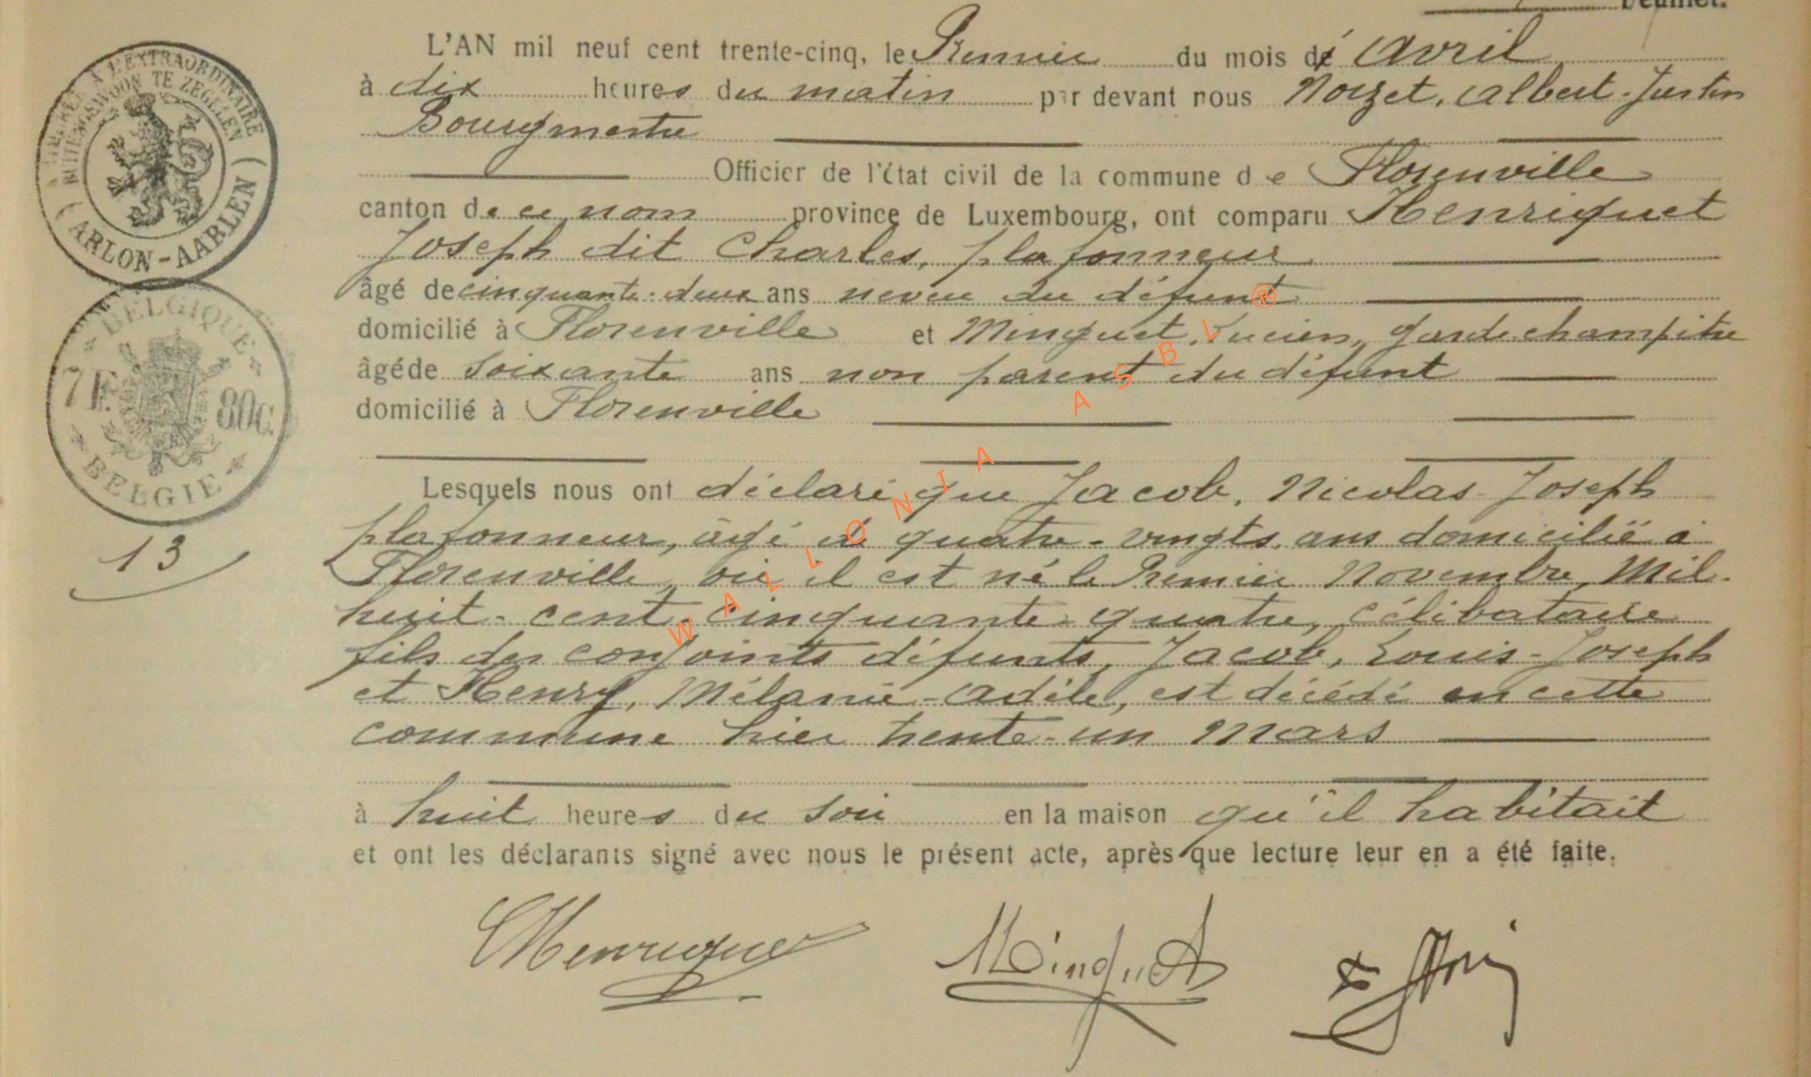 feuillet.
L'AN mil neuf cent trente-cinq, le Premier du mois d' avril
à dix heures du matin par devant nous Noizet, Albert-Justin
Bourgmestre
Officier de l'état civil de la commune de Florenville
canton de ce nom province de Luxembourg, ont comparu Henriquet
Joseph dit Charles, plafonneur
âgé de cinquante-deux ans neveu du défunt
domicilié à Florenville et Minquet, Lucien, garde champêtre
âgé de soixante ans non parent du défunt
domicilié à Florenville
Lesquels nous ont déclaré que Jacob, Nicolas-Joseph
plafonneur, âgé de quatre-vingts ans domicilié à
Florenville, où il est né le Premier Novembre, Mil-
huit-cent-cinquante-quatre, célibataire
fils des conjoints défunts, Jacob, Louis-Joseph
et Henry, Mélanie-Adèle, est décédé en cette
commune hier trente-un Mars
à huit heures du soir en la maison qu'il habitait
et ont les déclarants signé avec nous le présent acte, après que lecture leur en a été faite.
CHenriquet Minquet
BUITENGEWOON TE ZEGELEN
(ARLON-AARLEN)
BELGIQUE
7F. 80C.
BELGIE
13
WALLONIA ASBL ®